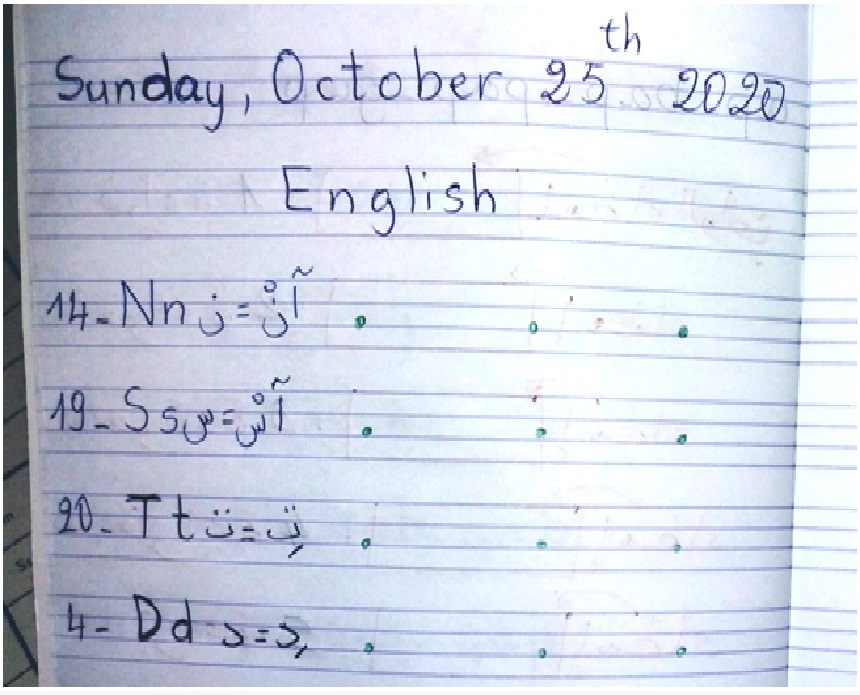 Sunday, October 25th 2020
English
14- Nn ن = آنْ
19- Ss س = آسْ
20- Tt ت = تِ
4- Dd د = دِ